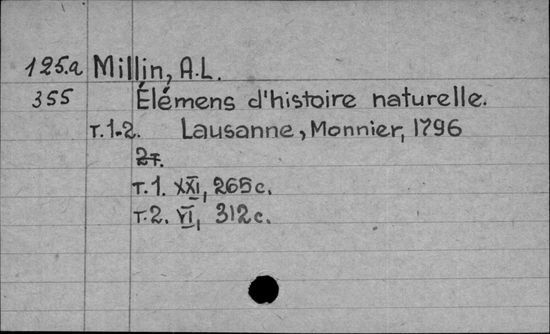 125.a Millin, A.L.
355 Élémens d'histoire naturelle.
т.1-2. Lausanne, Monnier, 1796
2т.
т.1. XXI, 265 с.
т.2. VI, 312 с.